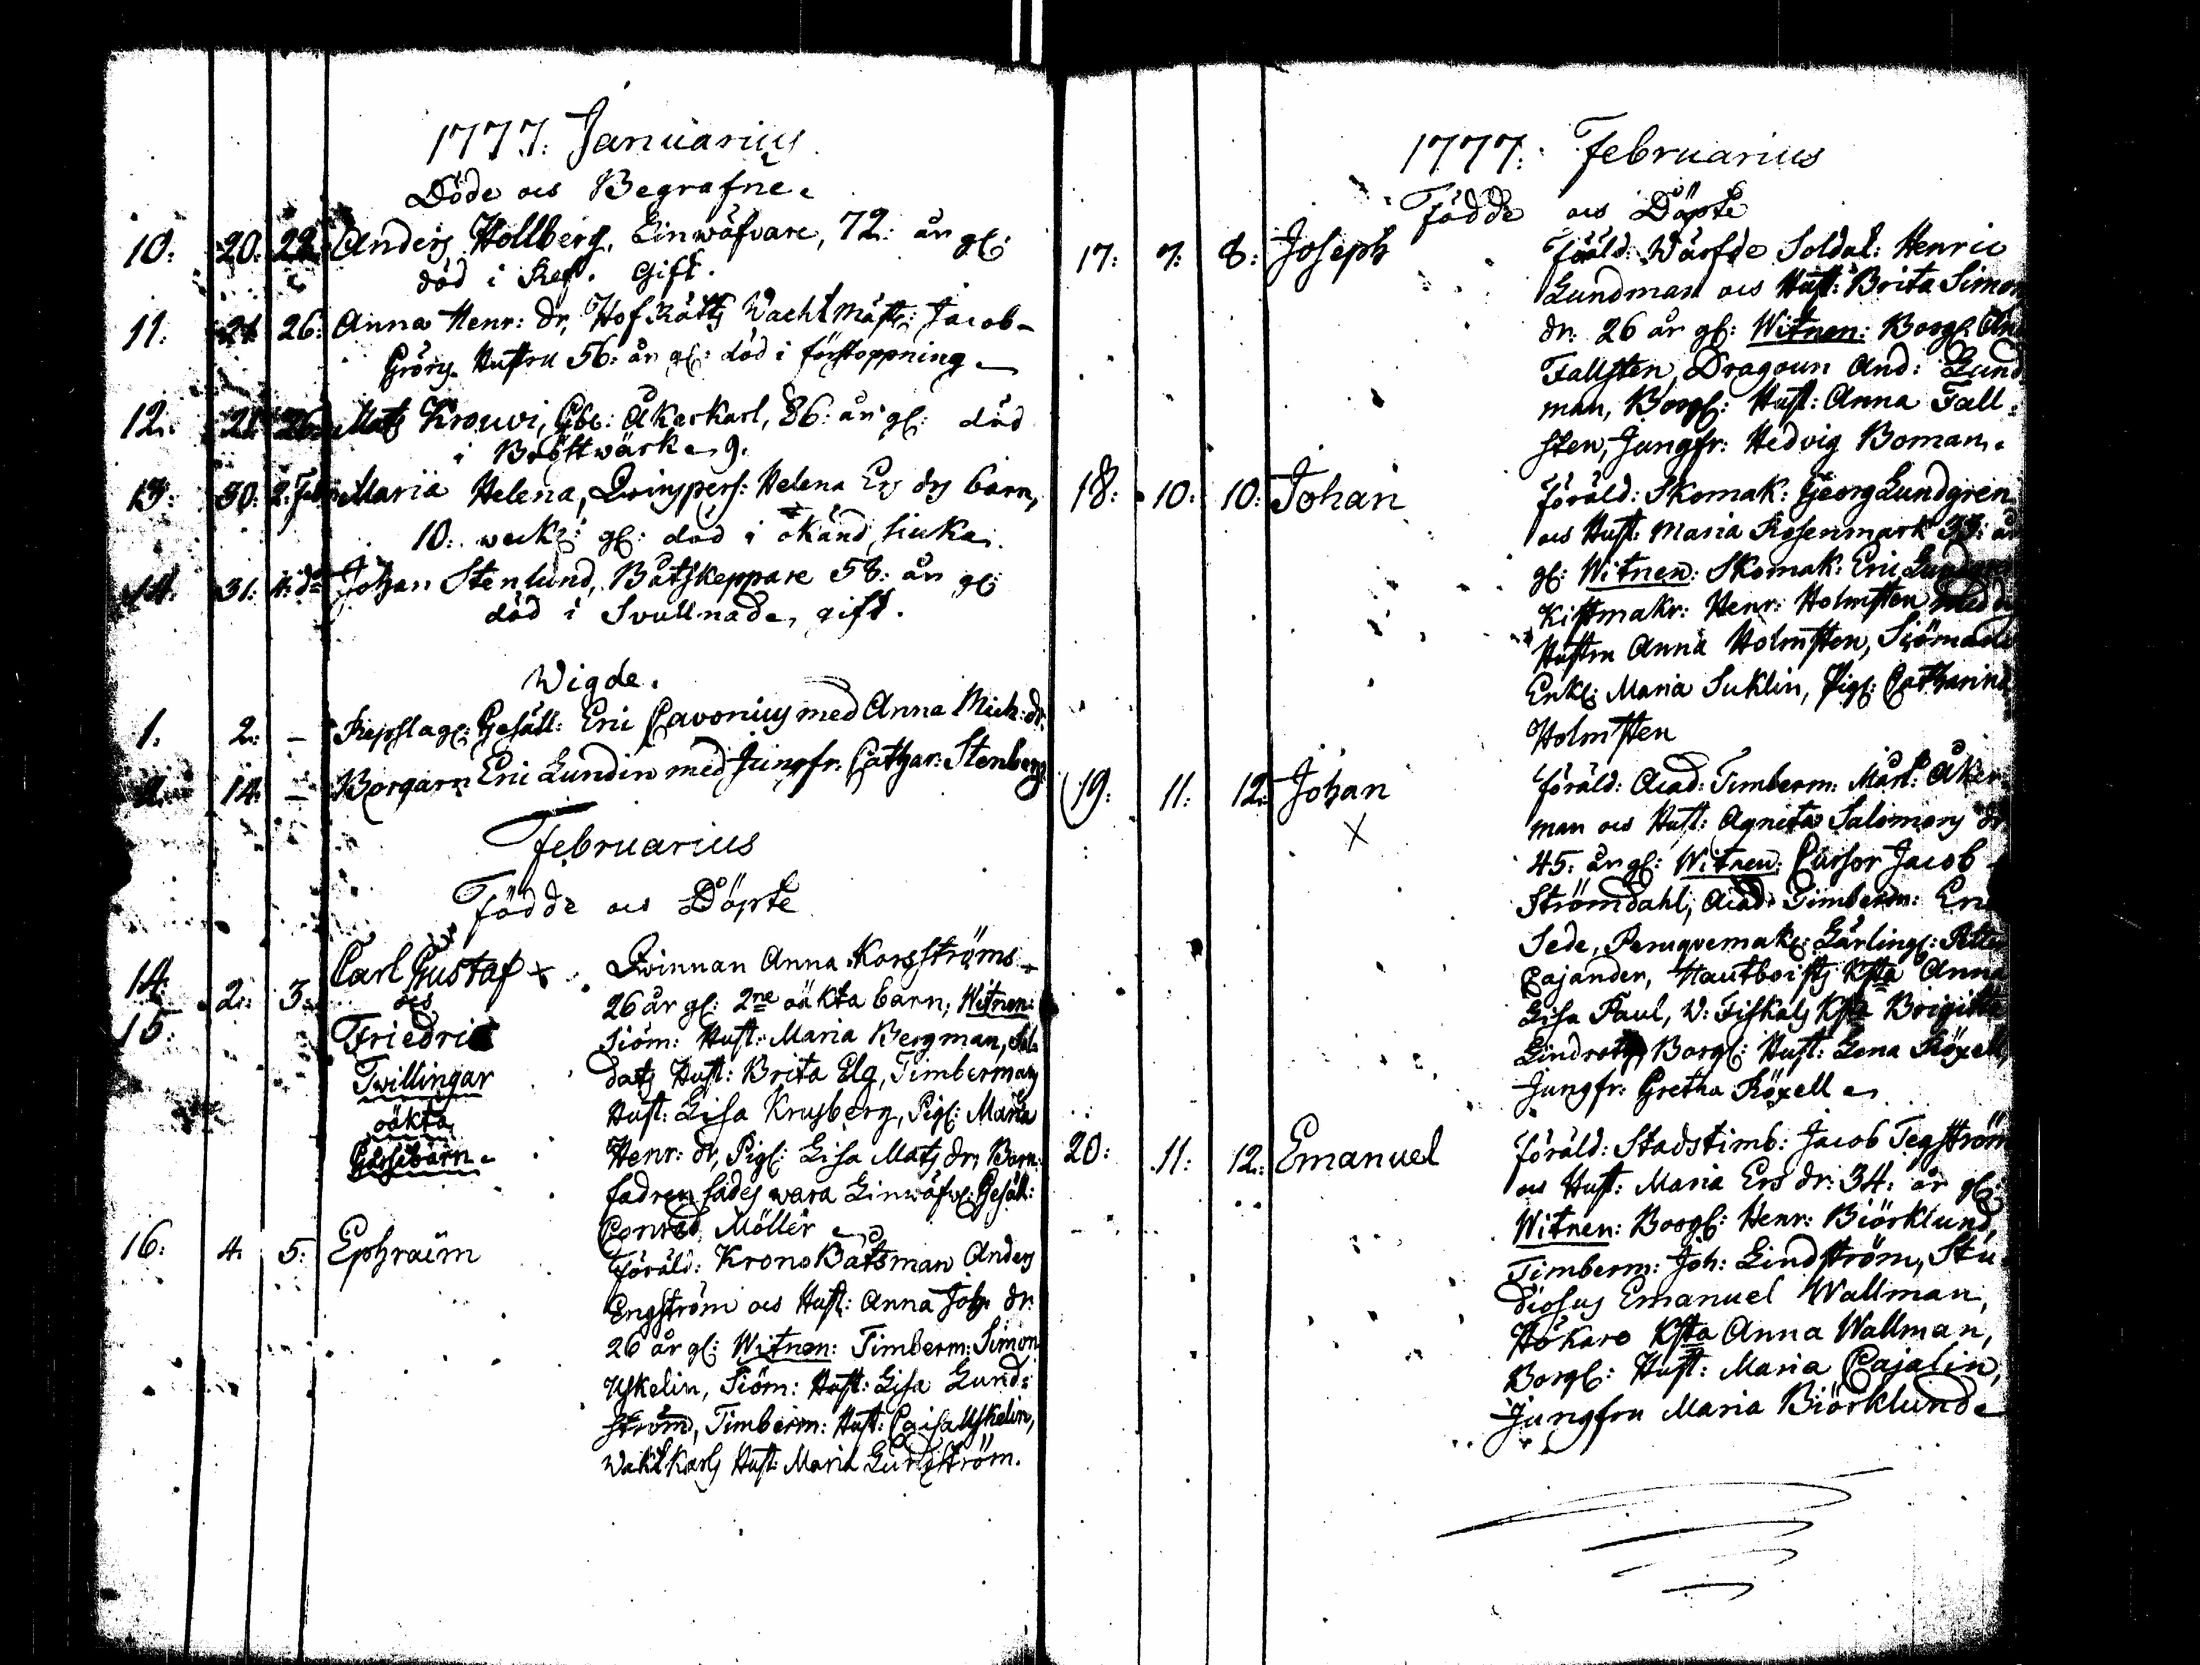 1777: Januarius
Döde och Begrafne.
10: 20: 22: Anders Hollberg, Linwäfvare, 72: år gl:
död i Ref. Gift.
11: 21 26: Anna Henr: dr, Hof Rätts Wacht Mäst: Jacob
Grörs Hustru 56: år gl: död i förstoppning
12: 21 26: Mats Krouvi, Gbl: Åkerkarl, 86: år gl: död
i Bröstwärk
13: 30: 2: Feb: Maria Helena, Qvinspers: Helena Ers drs barn,
10: veck: gl: död i okänd siuka
14: 31: 4: do Johan Stenlund, Båtskeppare 58: år gl:
död i Svullnad, gift.
Wigde.
1. 2: – Repslag: Gesäll: Eric Cavonius med Anna Mich: dr.
2. 14: – Borgarn Eric Lundin med Jungfr: Cathar: Stenberg
Februarius
Födde och Döpte
14: 2: 3: Carl Gustaf x Qvinnan Anna Korsströms
och 26 år gl: 2ne oäkta barn, Witnen:
15: Friedric Siöm: Hust: Maria Bergman, Sol-
Twillingar dats Hust: Brita Elg, Timbermans
oäkta Hust: Lisa Krusberg, Pig: Maria
Gossebarn Henr: dr, Pig: Lisa Mats dr, Barn:
fadren sades wara Linwäfv: Gesäll:
Conrad Möller
16: 4: 5: Ephraim Föräld: Krono Båtsman Anders
Engström och Hust: Anna Joh: dr:
26 år gl: Witnen: Timberm: Simon
Uskelin, Siöm: Hust: Lisa Lund:
ström, Timberm: Hust: Caisa Uskelin,
Wakt Karls Hust: Maria Lundström.
1777: Februarius
Födde och Döpte
17: 7: 8: Joseph Föräld: Wärfde Soldat: Henric
Lundman och Hust: Brita Simon
dr: 26 år gl: Witnen: Borg:
Fallsten, Dragoun And: Lund
man, Borg: Hust: Anna Fall:
sten, Jungfr: Hedvig Boman.
18: 10: 10: Johan Föräld: Skomak: Georg Lundgren
och Hust: Maria Rosenmark 33: år
gl: Witnen: Skomak: Eric
Kistmakr: Henr: Holmsten med
Hustru Anna Holmsten, Siömans
Enkl: Maria Suklin, Pig: Catharina
Holmsten
19: 11: 12: Johan Föräld: Acad: Timberm: Mårt: Åker
x man och Hust: Agneta Salomons dr
45: år gl: Witnen: Cursor Jacob
Strömdahl, Acad: Timberm: Eric
Sede, Peruqvemak: Lärling: Petter
Cajander, Hautboists Ksta Anna
Lisa Paul, V: Fiskals Ksta Brigitta
Lindroth, Borg: Hust: Lena Röxell,
Jungfr: Gretha Röxell
20: 11: 12: Emanuel Föräld: Stadstimb: Jacob Tegström
och Hust: Maria Ers dr: 34: år gl:
Witnen: Borg: Henr: Biörklund,
Timberm: Joh: Lindström, Stu
diosus Emanuel Wallman,
Hökare Ksta Anna Wallman,
Borg: Hust: Maria Cajalin,
Jungfru Maria Biörklund